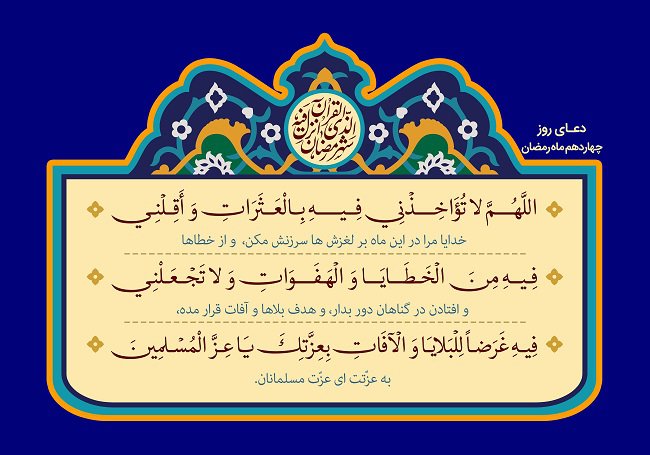 شهر رمضان الذی انزل فیه القرآن
دعـای روز
چهاردهم ماه رمضان
اللَّهُمَّ لَا تُؤَاخِذْنِي فِيهِ بِالْعَثَرَاتِ وَ أَقِلْنِي
خدایا مرا در این ماه بر لغزش ها سرزنش مکن، و از خطاها
فِيهِ مِنَ الْخَطَايَا وَ الْهَفَوَاتِ وَ لَا تَجْعَلْنِي
و افتادن در گناهان دور بدار، و هدف بلاها و آفات قرار مده،
فِيهِ غَرَضاً لِلْبَلَايَا وَ الْآفَاتِ بِعِزَّتِكَ يَا عِزَّ الْمُسْلِمِينَ
به عزّتت ای عزّت مسلمانان.